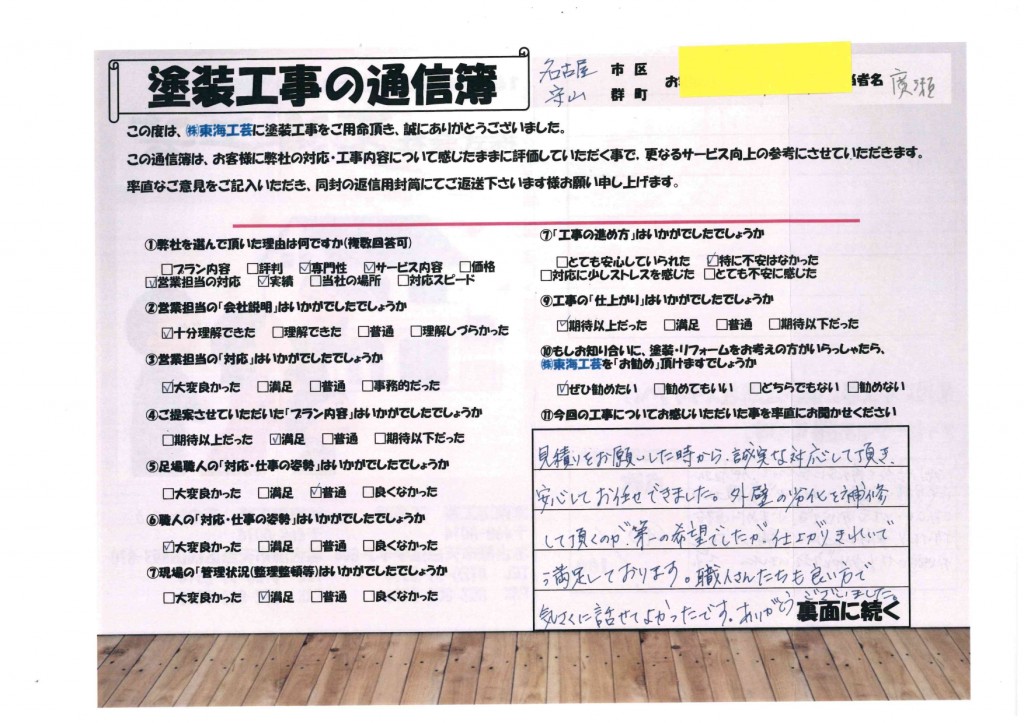 塗装工事の通信簿
名古屋 市 区
守山 群 町
者名 廣瀬
この度は、㈱東海工芸に塗装工事をご用命頂き、誠にありがとうございました。
この通信簿は、お客様に弊社の対応・工事内容について感じたままに評価していただく事で、更なるサービス向上の参考にさせていただきます。
率直なご意見をご記入いただき、同封の返信用封筒にてご返送下さいます様お願い申し上げます。
①弊社を選んで頂いた理由は何ですか(複数回答可)
□プラン内容 □評判 ☑専門性 ☑サービス内容 □価格
☑営業担当の対応 ☑実績 □当社の場所 □対応スピード
②営業担当の「会社説明」はいかがでしたでしょうか
☑十分理解できた □理解できた □普通 □理解しづらかった
③営業担当の「対応」はいかがでしたでしょうか
☑大変良かった □満足 □普通 □事務的だった
④ご提案させていただいた「プラン内容」はいかがでしたでしょうか
□期待以上だった ☑満足 □普通 □期待以下だった
⑤足場職人の「対応・仕事の姿勢」はいかがでしたでしょうか
□大変良かった □満足 ☑普通 □良くなかった
⑥職人の「対応・仕事の姿勢」はいかがでしたでしょうか
☑大変良かった □満足 □普通 □良くなかった
⑦現場の「管理状況(整理整頓等)はいかがでしたでしょうか
□大変良かった ☑満足 □普通 □良くなかった
⑦「工事の進め方」はいかがでしたでしょうか
□とても安心していられた ☑特に不安はなかった
□対応に少しストレスを感じた □とても不安に感じた
⑨工事の「仕上がり」はいかがでしたでしょうか
☑期待以上だった □満足 □普通 □期待以下だった
⑩もしお知り合いに、塗装・リフォームをお考えの方がいらっしゃたら、
㈱東海工芸を「お勧め」頂けますでしょうか
☑ぜひ勧めたい □勧めてもいい □どちらでもない □勧めない
⑪今回の工事についてお感じいただいた事を率直にお聞かせください
見積りをお願いした時から、誠実な対応して頂き、
安心してお任せできました。外壁の劣化を補修
して頂くのが第一の希望でしたが仕上がりきれいで
満足しております。職人さんたちも良い方で
気さくに話せてよかったです。ありがとうございました。
裏面に続く